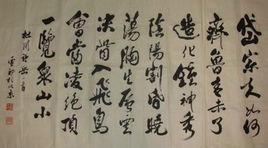 岱宗夫如何
齊魯青未了
造化鍾神秀
陰陽割昏曉
蕩胸生層雲
決眥入飛鳥
會當凌絕頂
一覽眾山小
杜甫詩望岳一首